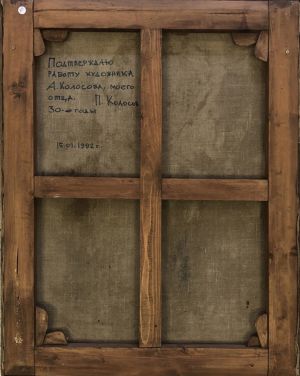 Подтверждаю
работу художника
А. Колосова, моего
отца. П. Колосов
30-е годы
15.01.1992 г.